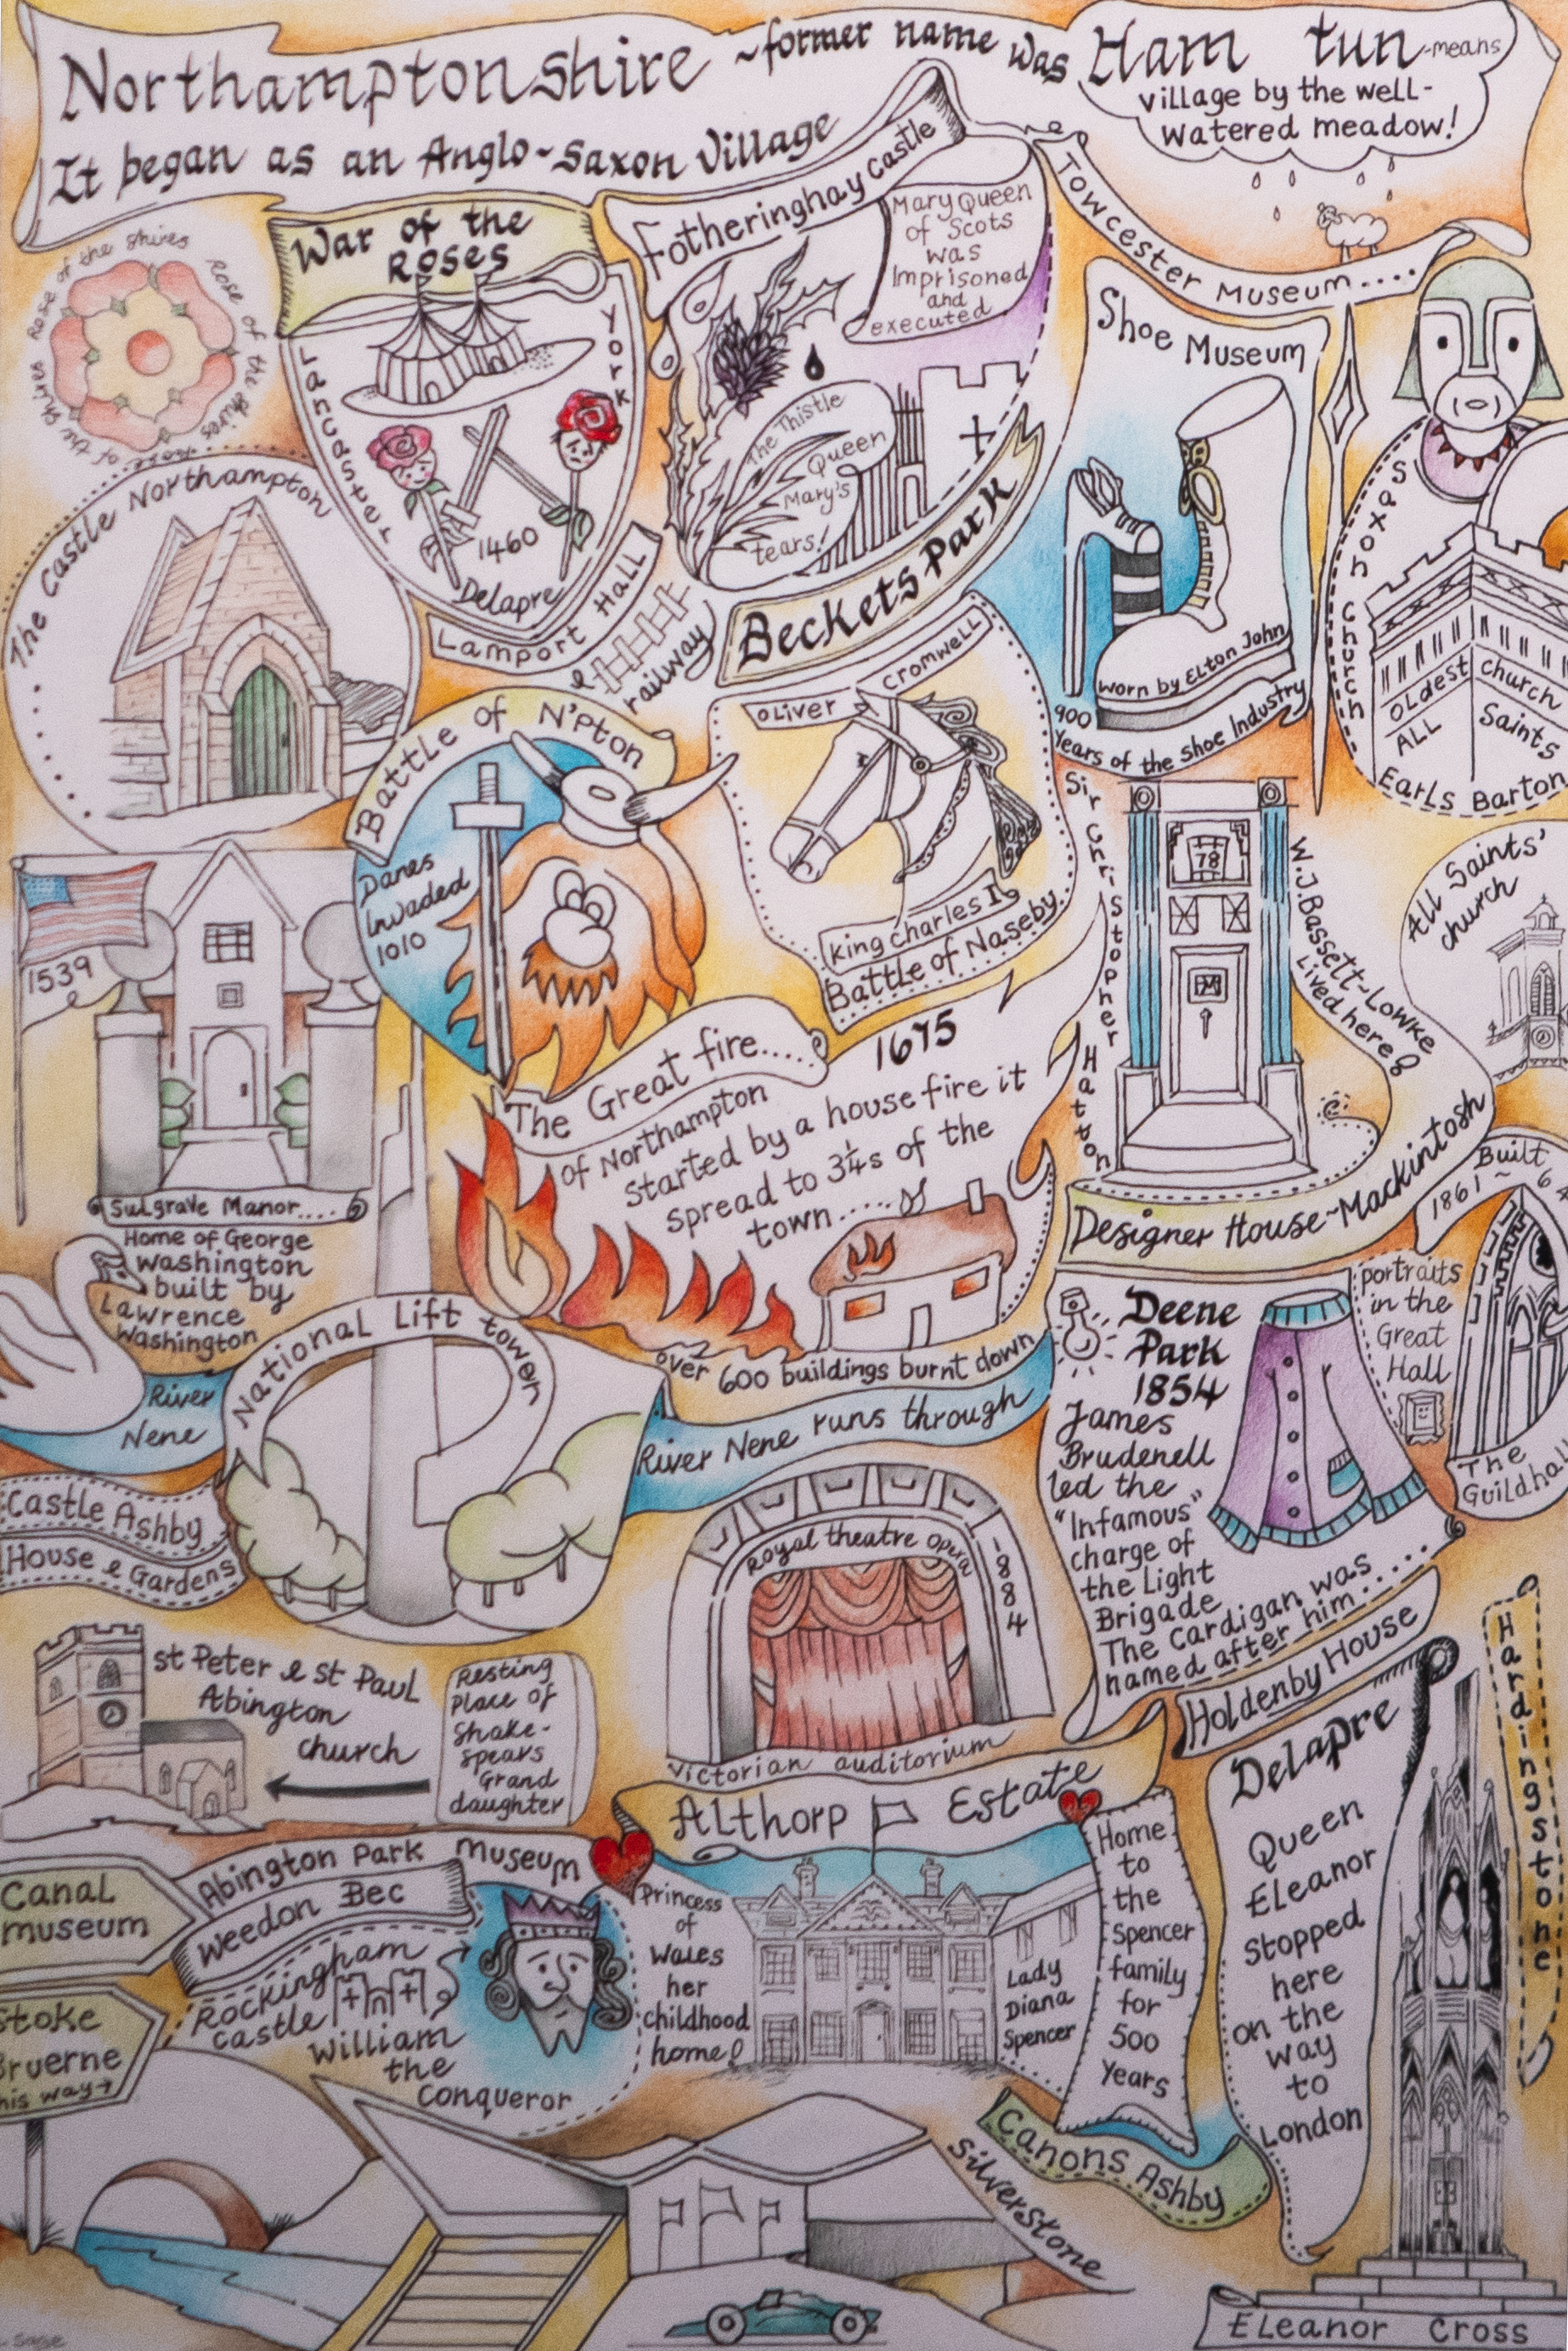 Northamptonshire ~former name was Ham tun -means
village by the well-
watered meadow!
It began as an Anglo-Saxon Village
Rose of the Shires Rose of the Shires Rose of the Shires
War of the
Roses
Lancaster
York
1460
Delapre
Fotheringhay Castle
Mary Queen
of Scots
was
Imprisoned
and
executed
The Thistle
Queen
Mary's
tears!
Towcester Museum....
Shoe Museum
worn by Elton John
900
Years of the Shoe Industry
Saxon Church
Oldest church
ALL Saints
Earls Barton
The Castle Northampton
Lamport Hall
& railway
Beckets Park
Battle of N'pton
Danes
Invaded
1010
Oliver Cromwell
King Charles I
Battle of Naseby
Sir Christopher Hatton
78
W.J.Bassett-Lowke
Lived here
Designer House~Mackintosh
All Saints'
church
1539
Sulgrave Manor....
Home of George
Washington
built by
Lawrence
Washington
The Great fire....
1675
of Northampton
started by a house fire it
spread to 3¼s of the
town.....
over 600 buildings burnt down
River
Nene
River Nene runs through
National Lift tower
Built
1861~64
portraits
in the
Great
Hall
The
Guildhall
Deene
Park
1854
James
Brudenell
led the
"Infamous"
charge of
the Light
Brigade
The Cardigan was
named after him....
Castle Ashby
House & Gardens
Royal theatre Opera
1884
Victorian auditorium
st Peter & st Paul
Abington
church
Resting
Place of
Shake-
spears
Grand
daughter
Holdenby House
Hardingstone
Delapre
Queen
Eleanor
stopped
here
on the
way
to
London
Eleanor Cross
Althorp Estate
Home
to
the
Spencer
family
for
500
Years
Princess
of
Wales
her
childhood
home
Lady
Diana
Spencer
Abington Park Museum
Canal
museum
Weedon Bec
Rockingham
castle
William
the
Conqueror
Stoke
Bruerne
this way
Canons Ashby
Silverstone